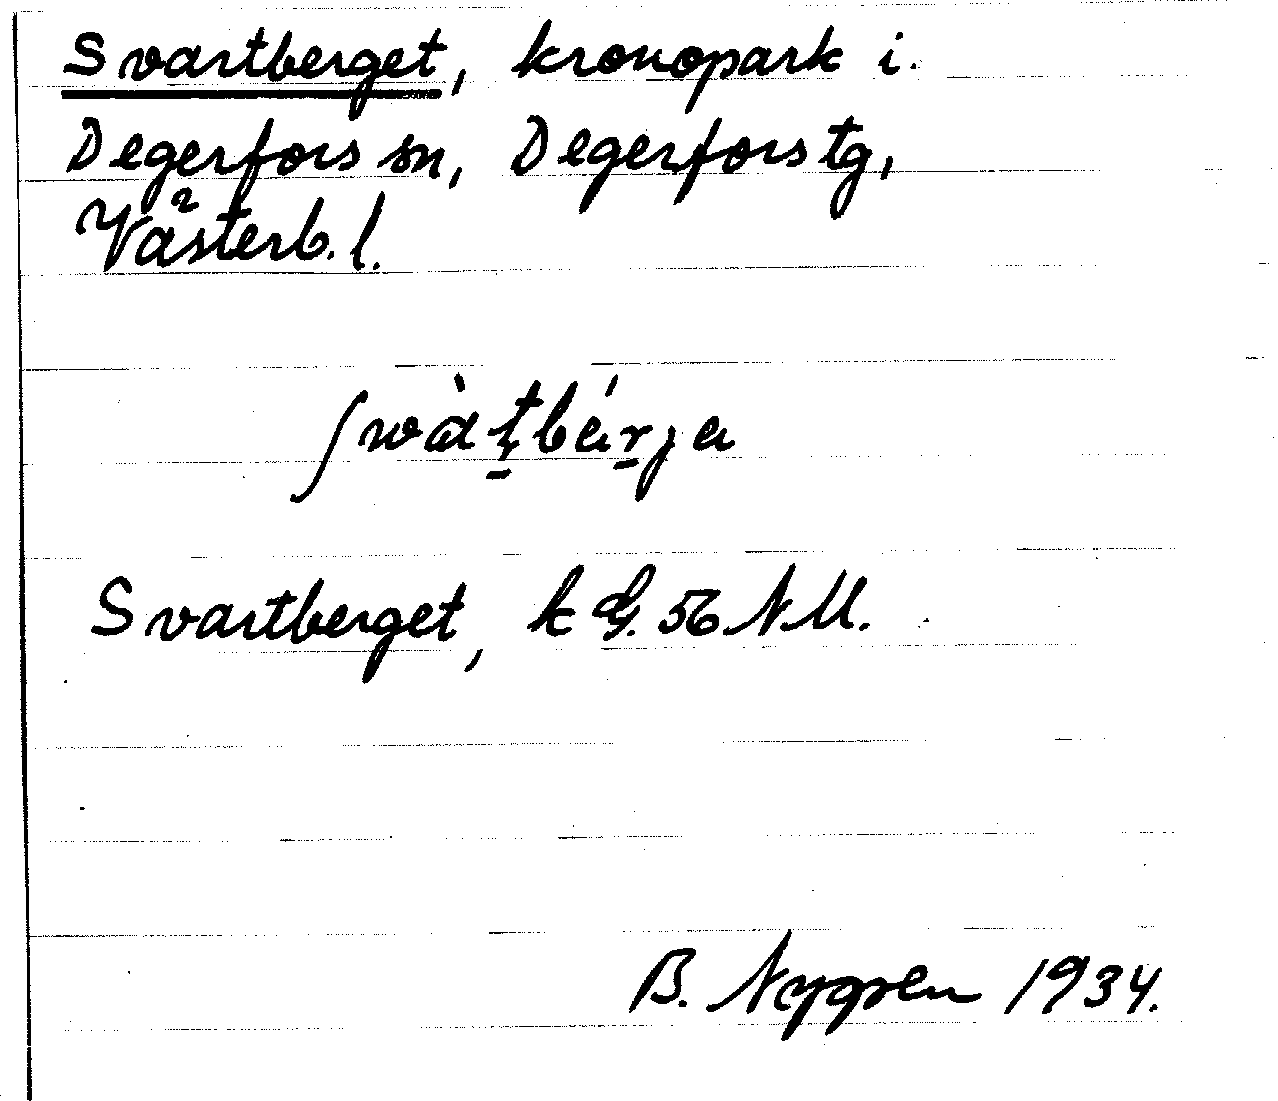 Svartberget, kronopark i.
Degerfors sn, Degerfors tg,
Västerb. l.
ʃwàt̠bár̠ja
Svartberget, k G. 56 NM.
B. Nygren 1934.